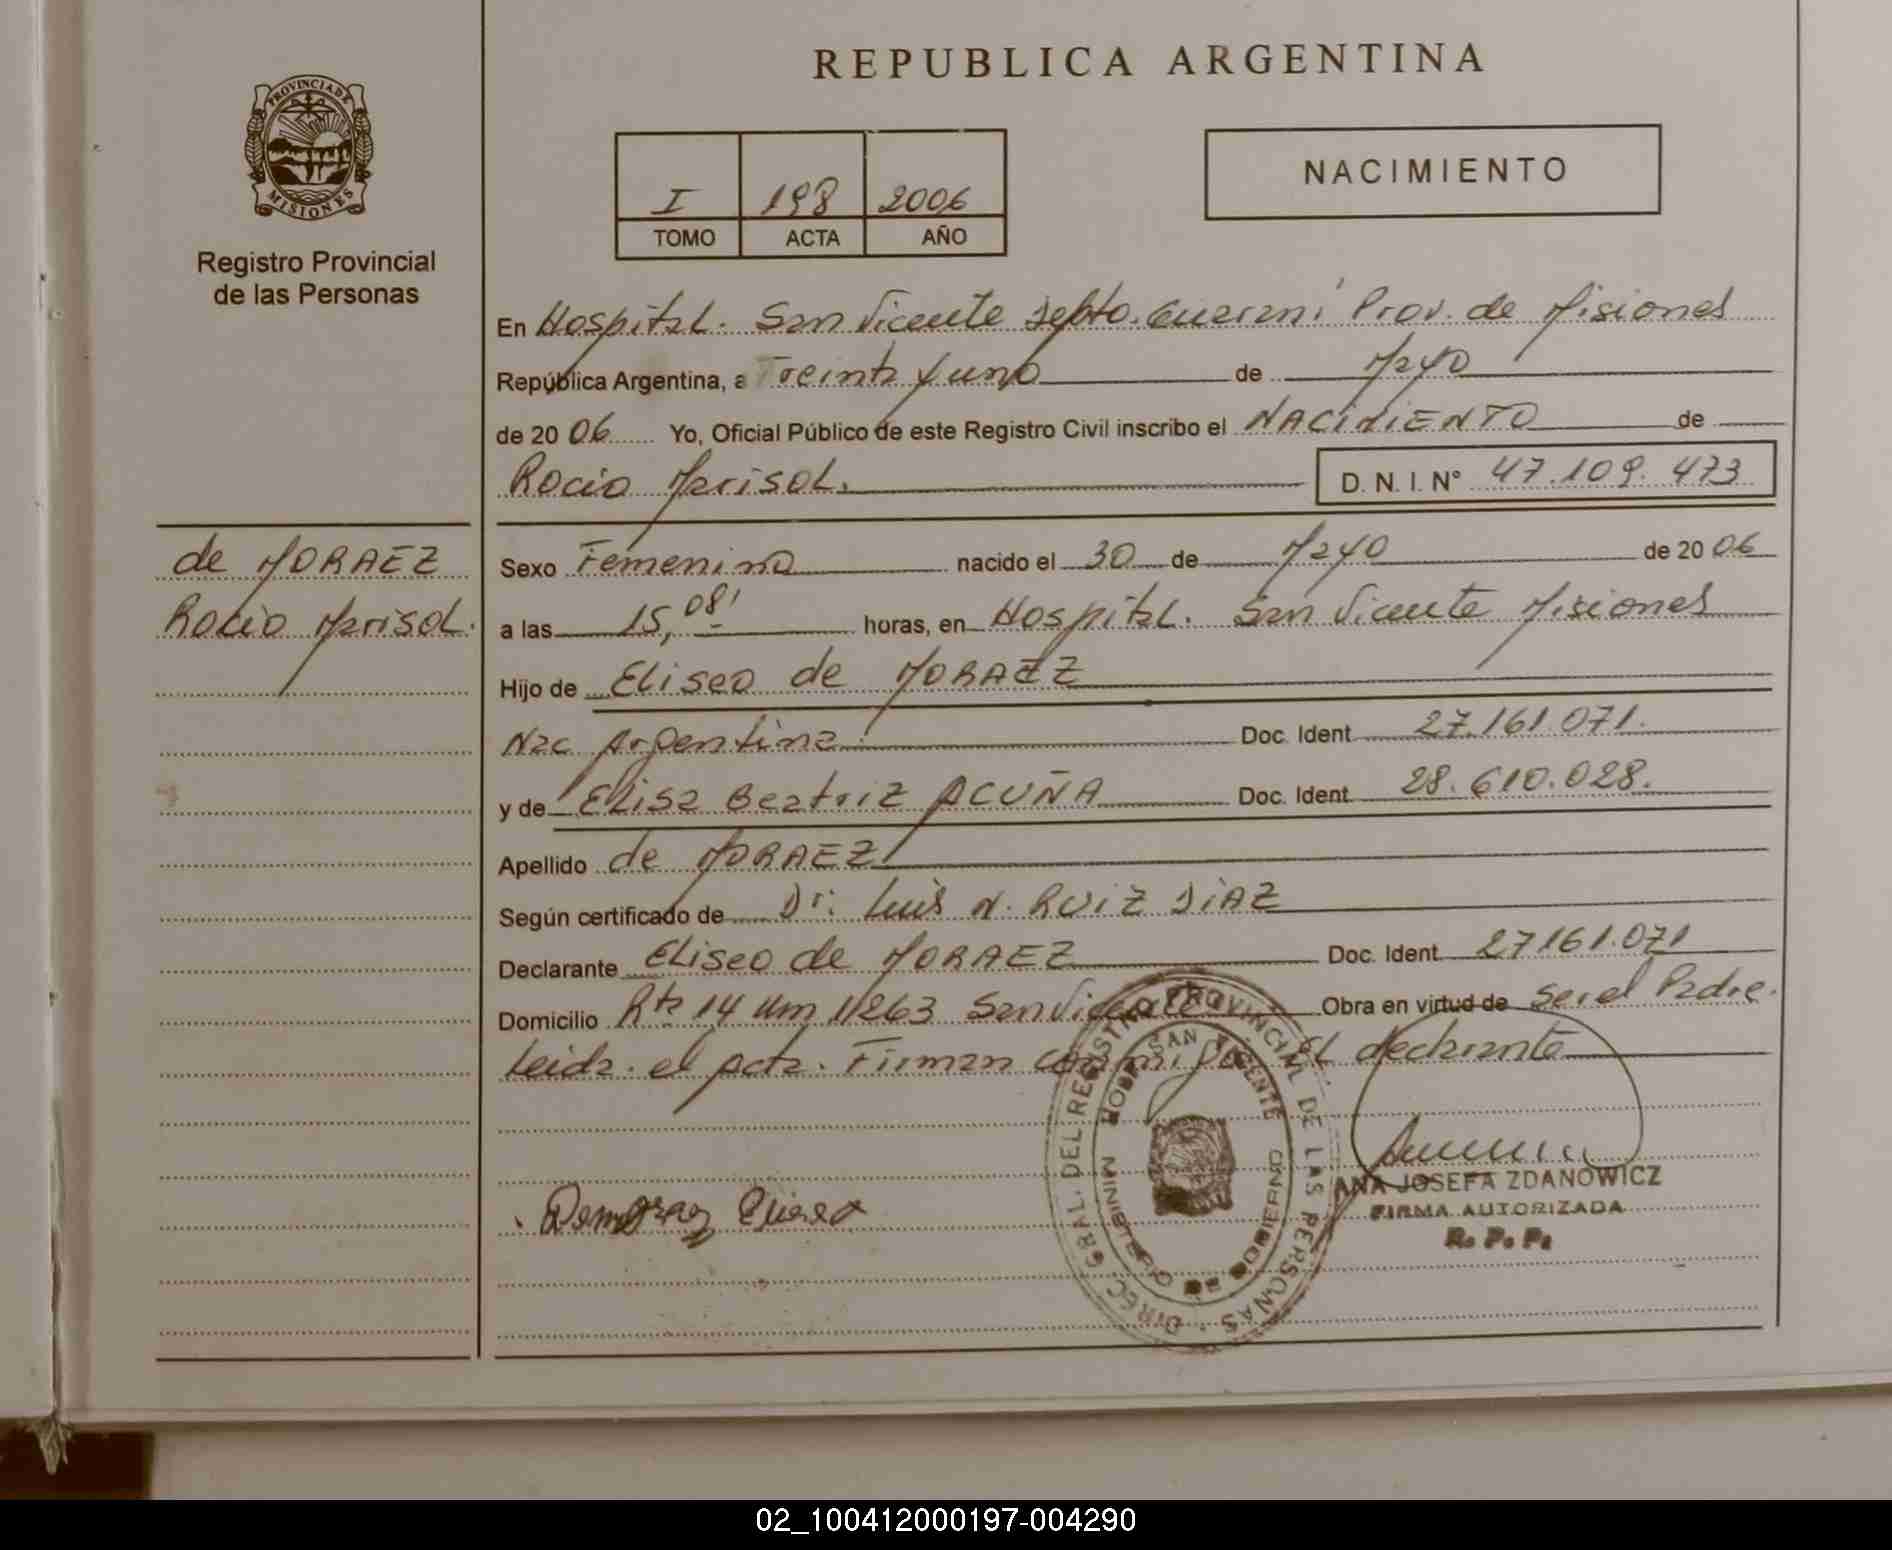 REPUBLICA ARGENTINA
PROVINCIA DE
MISIONES
Registro Provincial
de las Personas
I 198 2006
TOMO ACTA AÑO
NACIMIENTO
En Hospital. San Vicente Depto. Guarani Prov. de Misiones
República Argentina, a Treinta y uno de Mayo
de 2006 Yo, Oficial Público de este Registro Civil inscribo el NACIMIENTO de
Rocio Marisol. D. N. I. N° 47.109.473
de MORAEZ
Rocio Marisol.
Sexo Femenino nacido el 30 de Mayo de 2006
a las 15,08' horas, en Hospital. San Vicente Misiones
Hijo de Eliseo de MORAEZ
Nac Argentina. Doc. Ident. 27.161.071.
y de Elisa Beatriz ACUÑA Doc. Ident. 28.610.028.
Apellido de MORAEZ
Según certificado de Dr. Luis N. RUIZ DIAZ
Declarante Eliseo de MORAEZ Doc. Ident. 27161.071
Domicilio Rta 14 Km 11263 San Vicente Obra en virtud de ser el Padre.
Leida. el acta. Firman conmigo El declarante
DIREC. GRAL. DEL REGISTRO PROVINCIAL DE LAS PERSONAS
SAN VICENTE
MINISTERIO DE GOBIERNO
ANA JOSEFA ZDANOWICZ
FIRMA AUTORIZADA
R. P. P.
02_100412000197-004290